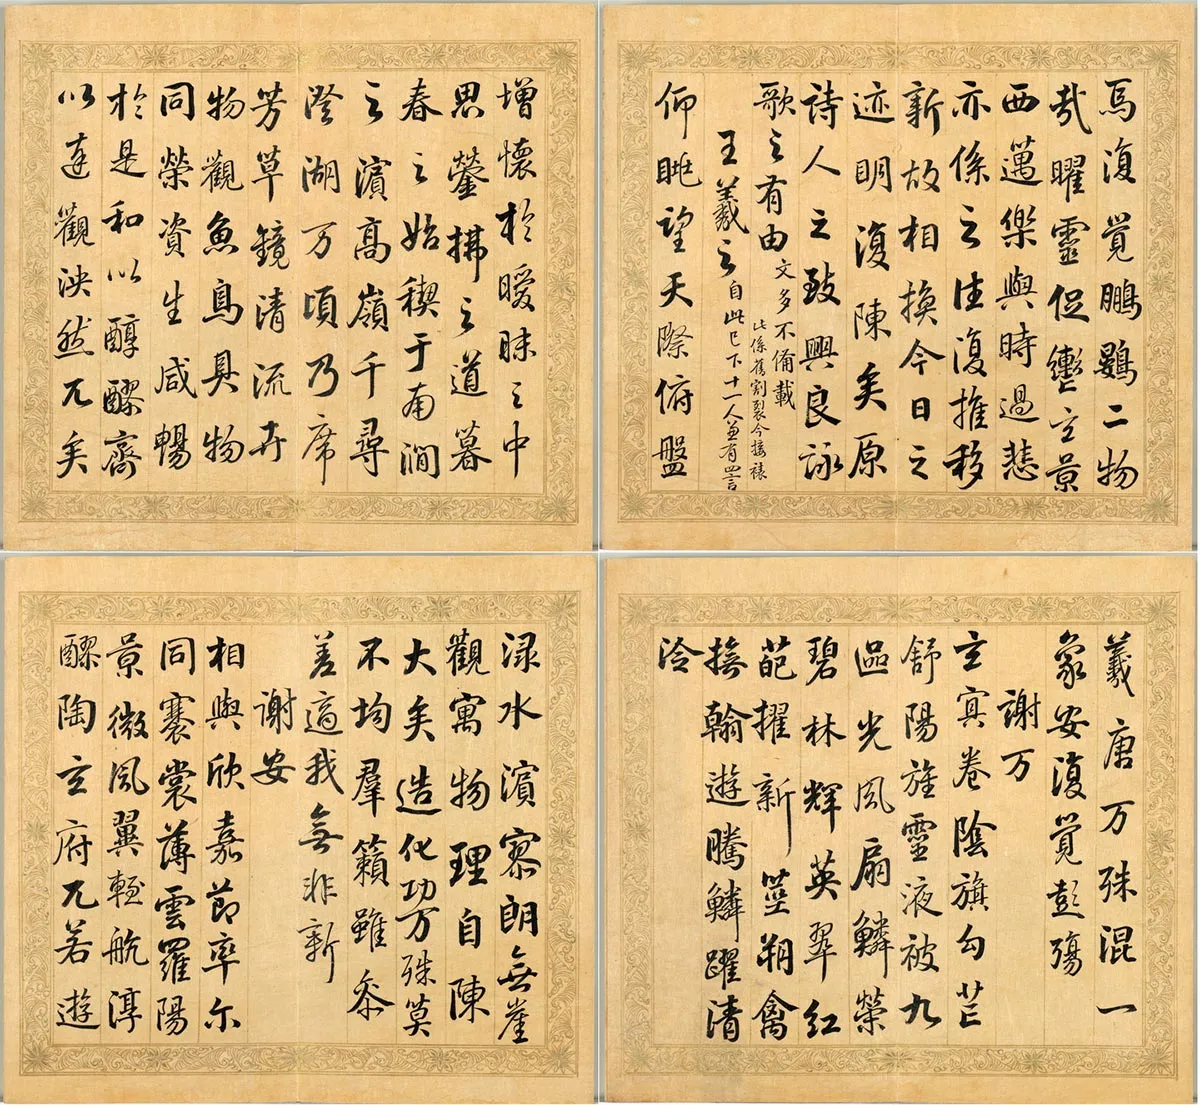 增懷於曖昧之中
思鎣拂之道暮
春之始稧于南澗
之濵高嶺千尋
澄湖万頃乃席
芳草鏡清流卉
物觀魚鳥具物
同榮資生咸暢
於是和以醇醪齊
以達觀泱然兀矣
焉復覺鵬鷃二物
哉曜靈促轡玄景
西邁樂與時過悲
亦係之往復推移
新故相換今日之
迹明復陳矣原
詩人之致興良詠
歌之有由文多不備載
此係舊割裂今接裱
王羲之自此已下十一人並有四言
仰眺望天際俯盤
渌水濵寥朗無崖
觀寓物理自陳
大矣造化功万殊莫
不均羣籟雖參
差適我無非新
謝安
相與欣嘉節率尓
同褰裳薄雲羅陽
景微風翼輕航淳
醪陶玄府兀若遊
羲唐万殊混一
象安復覺彭殤
謝万
玄冥卷陰旗勾芒
舒陽旌靈液被九
區光風扇鱗榮
碧林輝英翠紅
葩擢新莖翔禽
撫翰遊騰鱗躍清
泠